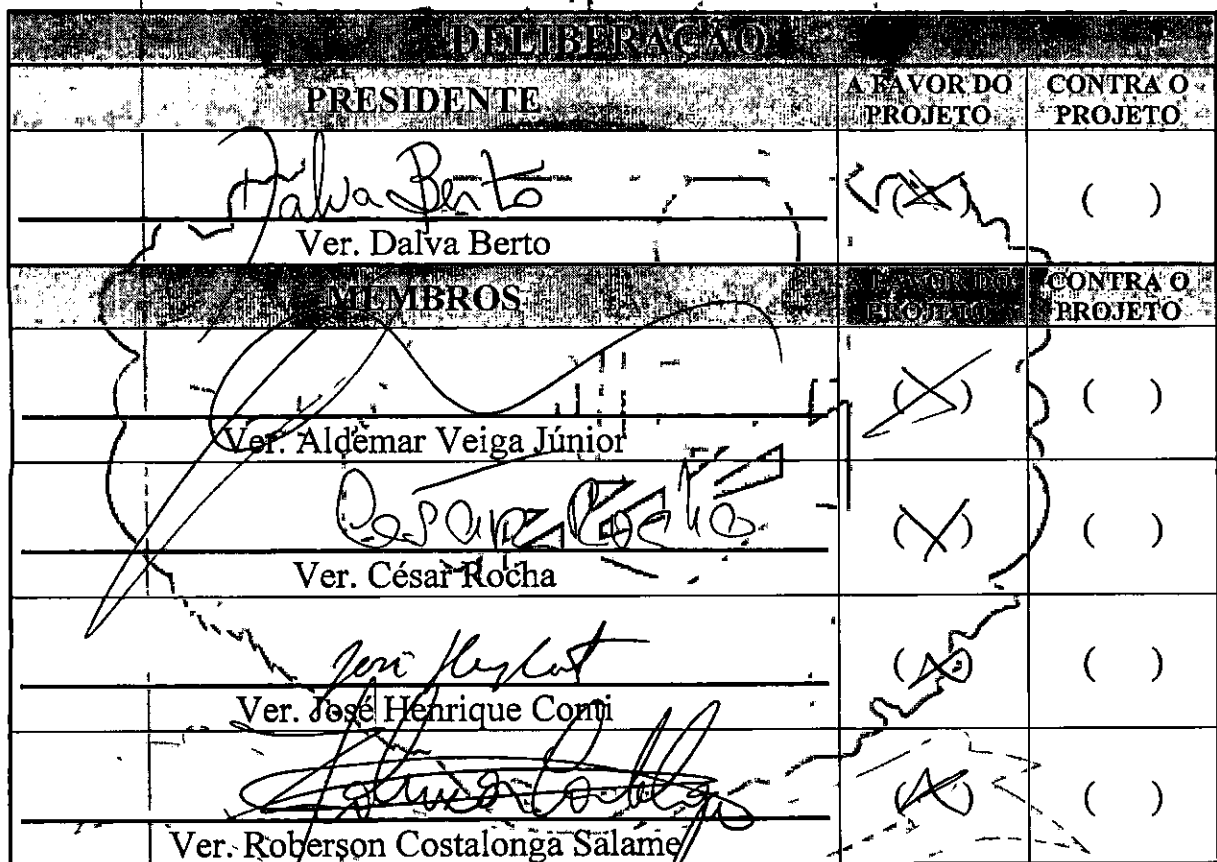 DELIBERAÇÃO
PRESIDENTE
A FAVOR DO PROJETO
CONTRA O PROJETO
Dalva Berto
(X)
( )
Ver. Dalva Berto
MEMBROS
A FAVOR DO PROJETO
CONTRA O PROJETO
(X)
( )
Ver. Aldemar Veiga Júnior
Cesar Rocha
(X)
( )
Ver. César Rocha
(X)
( )
Ver. José Henrique Conti
(X)
( )
Ver. Roberson Costalonga Salame